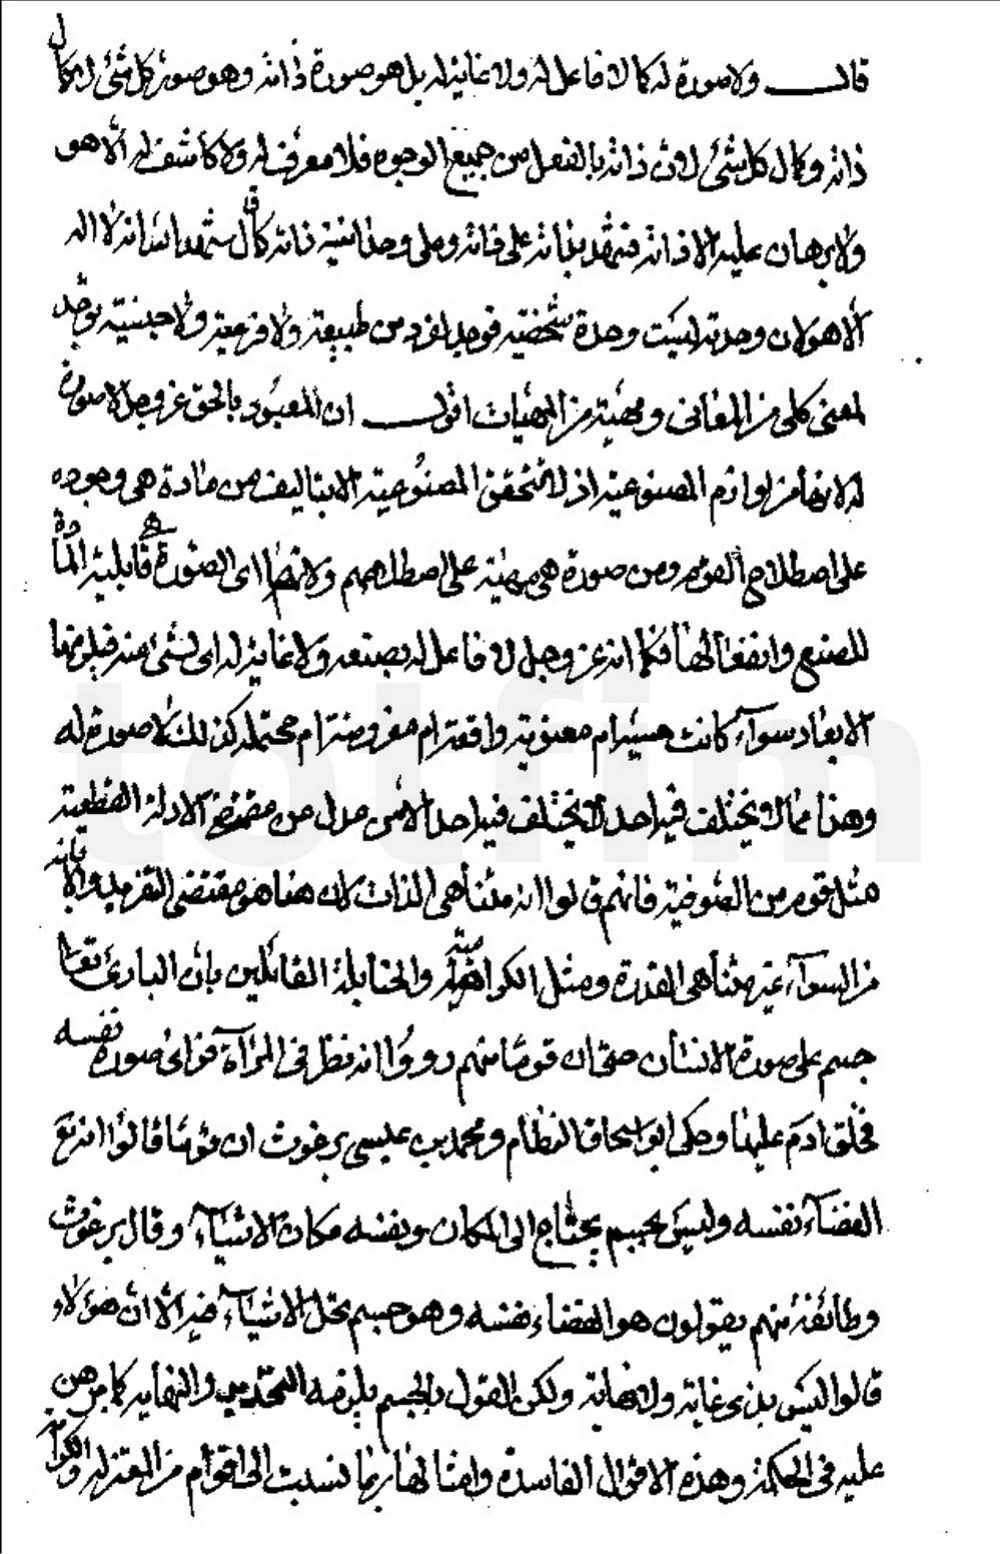 قال ولا صورة له كما لا فاعل له ولا غاية له بل هو صورة ذاته وهو صورة كل شئ لانه كمال
ذاته وكمال كل شئ لان ذاته بالفعل من جميع الوجوه فلا معرف له ولا كاشف له الا هو
ولا برهان عليه الا ذاته فشهد بذاته على ذاته وعلى وحدانية ذاته كما قال شهد الله انه لا اله
الا هو لان وحدته ليست وحدة شخصية توجد لفرد من طبيعة ولا نوعية ولا جنسية توجد
لمعنى كلى من المعانى ومهية من المهيات اقول ان المعبود بالحق عز وجل لا صورة
له لانها من لوازم المصنوعية اذ لا تتحقق المصنوعية الا بتاليف من مادة هى وجوده
على اصطلاح القوم ومن صورة هى مهية على اصطلاحهم ولانها اى الصورة هى قابلية المادة
للصنع وانفعالها فكما انه عز وجل لا فاعل له بصنعه ولا غاية له اى لشئ عنده قبلو منها
الابعاد سواء كانت حسية ام معنوية واقعة ام مفروضة ام محتملة كذلك لا صورة له
وهذا مما لا يختلف فيه احد الا يختلف فيه احد الا من عدل عن مقتضى الادلة القطعية
مثل قوم من الصوفية فانهم قالوا انه متناهى الذات لان هذا هو مقتضى التفريد والابانة
من السواء غير متناهى القدرة ومثل الكرامية والحنابلة القائلين بان البارئ تعالى
جسم على صورة الانسان حتى ان قوما منهم رووا انه نظر فى المرآة فرائ صورة نفسه
فخلق ادم عليها وحكى ابو اسحاق النظام ومحمد بن عيسى برغوث ان قوما قالوا انه تع
الفضاء نفسه وليس بجسم يحتاج الى المكان ونفسه مكان الاشياء وقال برغوث
وطائفة منهم يقولون هو الفضاء نفسه وهو جسم تحل الاشياء فيه الا ان هؤلاء
قالوا ليس بذى غاية ولا نهاية ولكن القول بالجسم يلزمه التحديد والنهاية كما برهن
عليه فى الحكمة وهذه الاقوال الفاسدة وامثالها ربما نسبت الى اقوام من المعتزلة
totfim